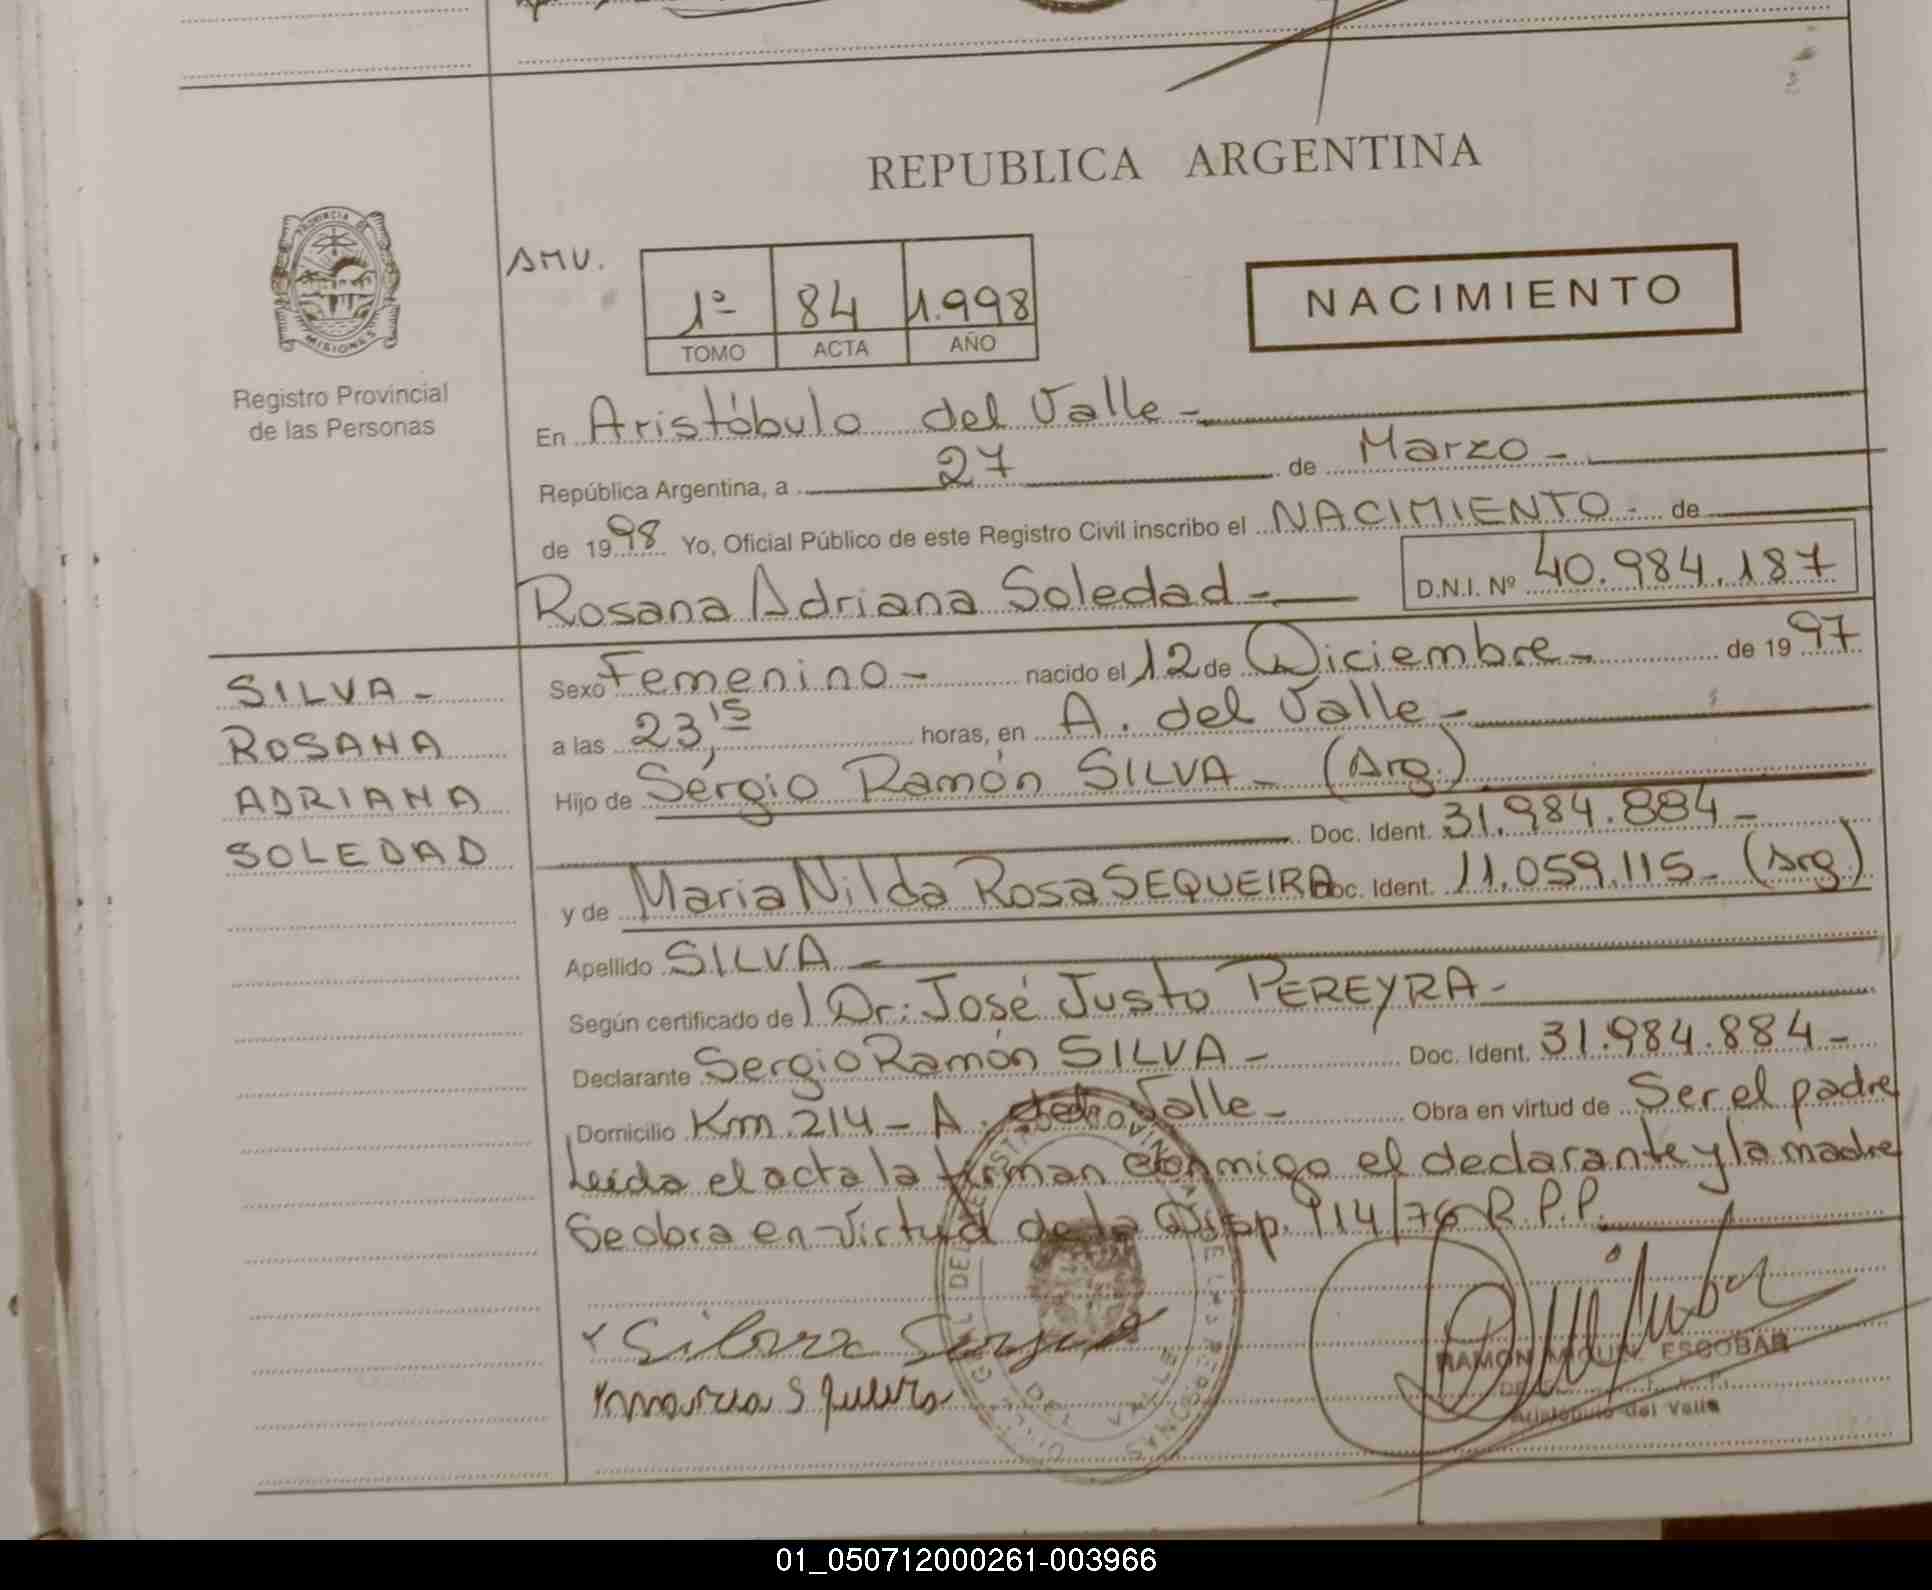 REPUBLICA ARGENTINA
PROVINCIA DE
MISIONES
Registro Provincial
de las Personas
AMU.
1º 84 1.998
TOMO ACTA AÑO
NACIMIENTO
En Aristóbulo del Valle -
República Argentina, a 27 de Marzo -
de 1998 Yo, Oficial Público de este Registro Civil inscribo el NACIMIENTO - de
Rosana Adriana Soledad - D.N.I. Nº 40.984.187
SILVA -
ROSANA
ADRIANA
SOLEDAD
Sexo Femenino - nacido el 12 de Diciembre - de 1997
a las 23,15 horas, en A. del Valle -
Hijo de Sergio Ramón SILVA - (Arg.)
Doc. Ident. 31.984.884 -
y de Maria Nilda Rosa SEQUEIRA Doc. Ident. 11.059.115 - (Arg.)
Apellido SILVA -
Según certificado de l Dr: José Justo PEREYRA -
Declarante Sergio Ramón SILVA - Doc. Ident. 31.984.884 -
Domicilio Km. 214 - A. del Valle - Obra en virtud de Ser el padre
Leída el acta la firman conmigo el declarante y la madre
Se obra en virtud de la Disp. 114/76 R.P.P.
Silva Sergio
DEL VALLE
RAMON ESCOBAR
Aristóbulo del Valle
01_050712000261-003966